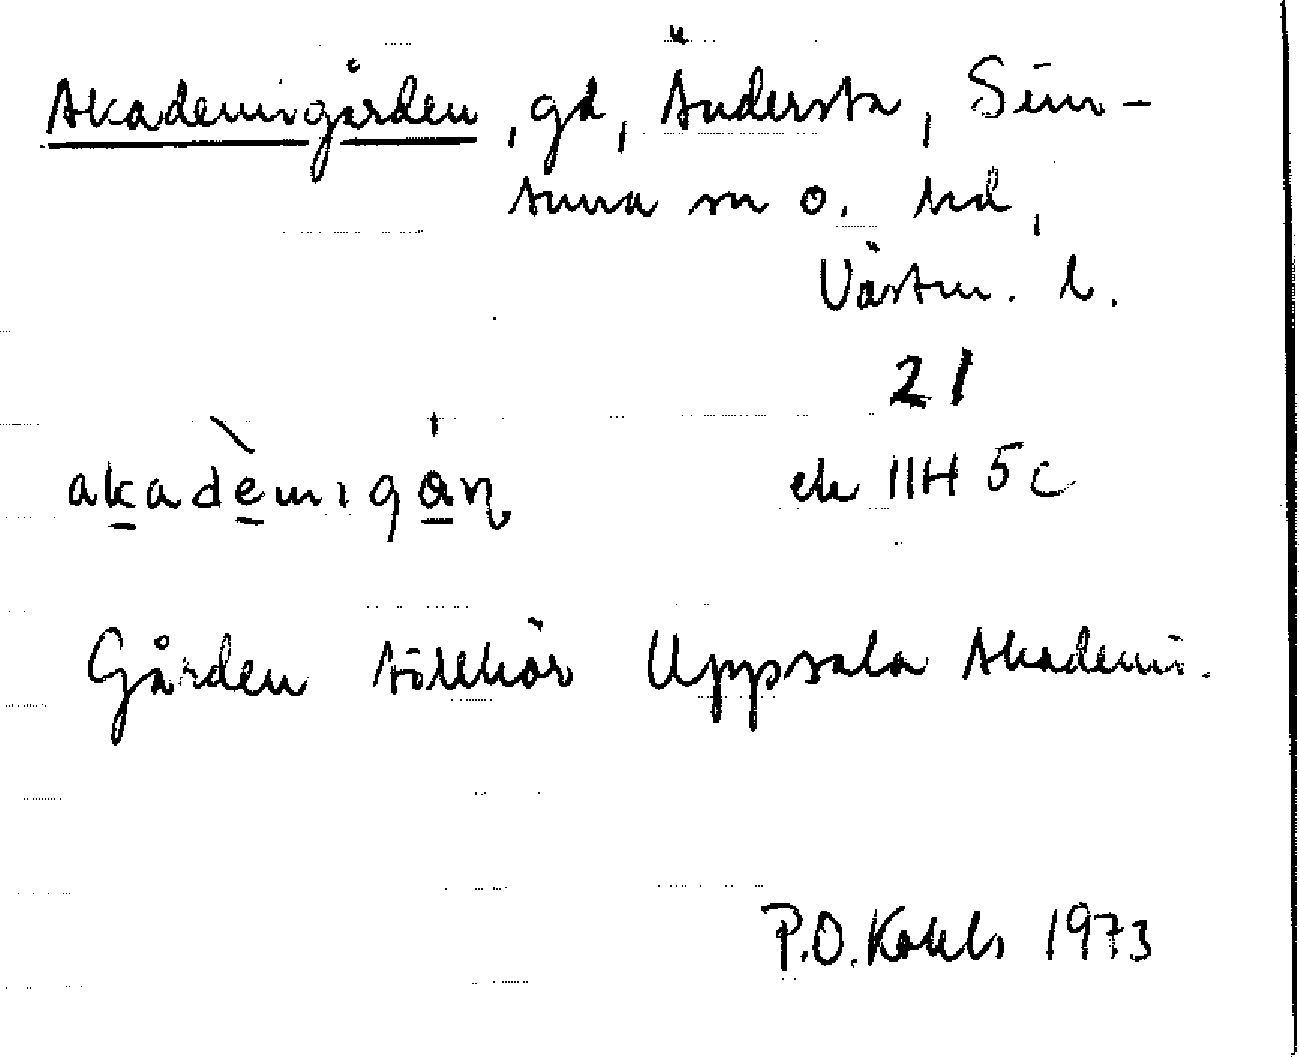 Akademigården, gd, Ändersta, Sim-
tuna sn o. hd,
Västm. l.
21
akadèmigån ek 11H 5c
Gården tillhör Uppsala Akademi.
P.O. 1973